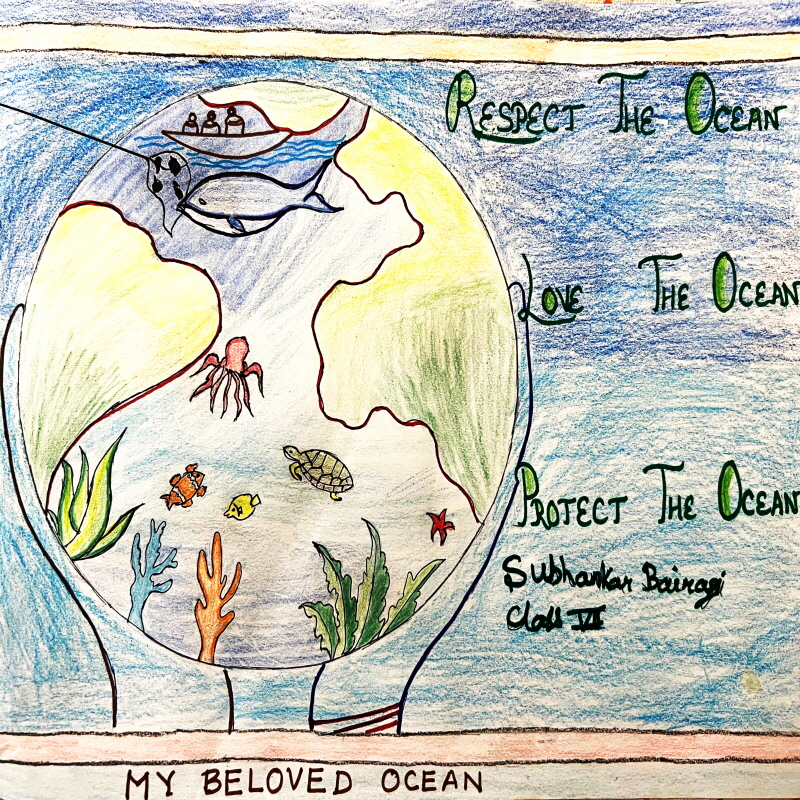 RESPECT THE OCEAN
LOVE THE OCEAN
PROTECT THE OCEAN
Subhankar Bairagi
Class VII
MY BELOVED OCEAN